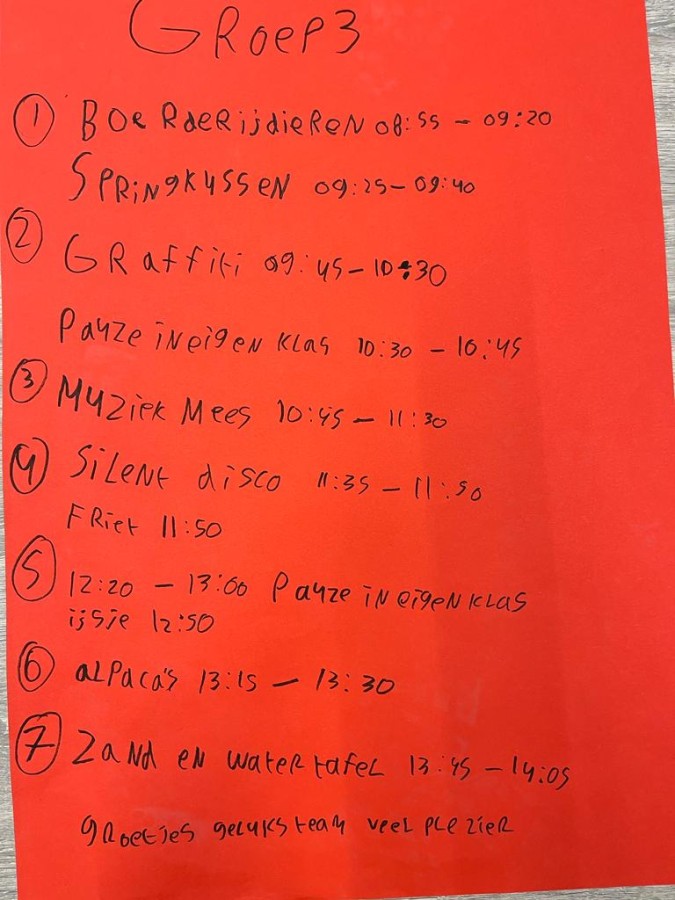 GRoep3
1 BOeRdeRijdieReN 08:55 - 09:20
SPRiNgKussEN 09:25-09:40
2 GRaffiti 09:45-10:30
Pauze iNeigeN klas 10:30 - 10:45
3 MuZiek Mees 10:45 - 11:30
4 SiLeNt disco 11:35 - 11:50
FRiet 11:50
5 12:20 - 13:00 Pauze iN eigeN klas
ijsje 12:50
6 aLPaca's 13:15 - 13:30
7 ZaNd eN wateR tafeL 13:45 - 14:05
gRoetjes geluksteam veel PLezieR